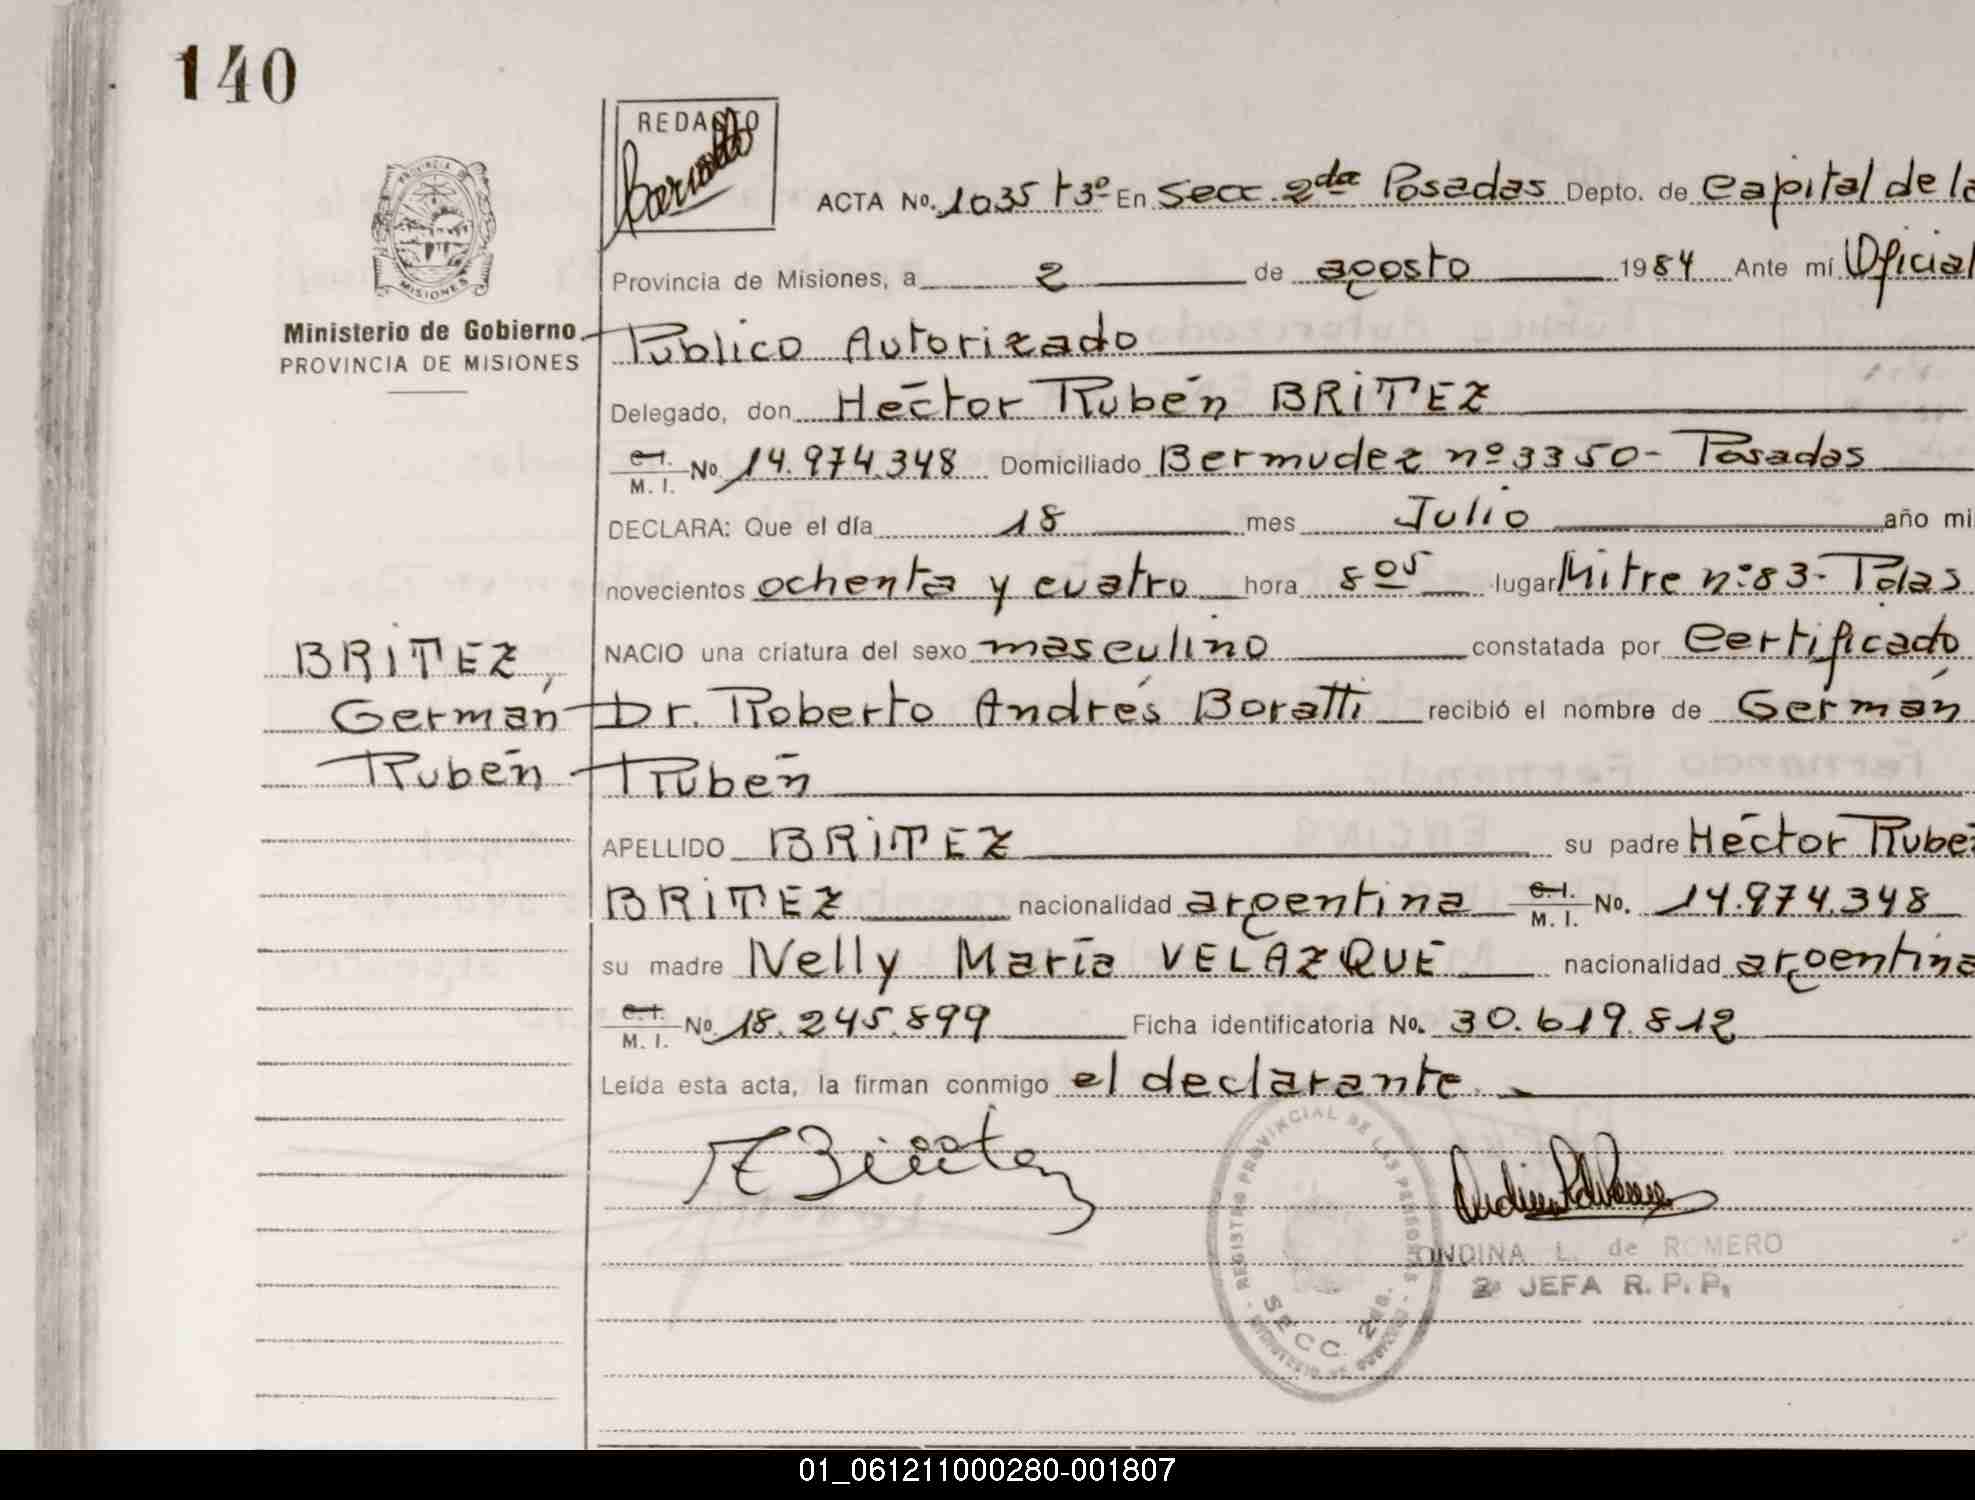 140
REDACTO
PROVINCIA DE
MISIONES
Ministerio de Gobierno
PROVINCIA DE MISIONES
ACTA No. 1035 t 3º En Secc. 2da Posadas Depto. de Capital de la
Provincia de Misiones, a 2 de agosto 1984 Ante mí Oficial
Público Autorizado
Delegado, don Héctor Rubén BRITEZ
C.I. M. I. No. 14.974.348 Domiciliado Bermudez nº 3350- Posadas
DECLARA: Que el día 18 mes Julio año mi
novecientos ochenta y cuatro hora 8 05 lugar Mitre nº 83- Pdas
NACIO una criatura del sexo masculino constatada por Certificado
BRITEZ,
Germán
Rubén
Dr. Roberto Andrés Boratti recibió el nombre de Germán
Rubén
APELLIDO BRITEZ su padre Héctor Rubé
BRITEZ nacionalidad argentina C.I. M. I. No. 14.974.348
su madre Nelly María VELAZQUE nacionalidad argentina
C.I. M. I. No. 18.245.899 Ficha identificatoria No. 30.619.812
Leída esta acta, la firman conmigo el declarante.
REGISTRO PROVINCIAL DE LAS PERSONAS
SECC. 2da.
ONDINA L. de ROMERO
2ª JEFA R. P. P.
01_061211000280-001807